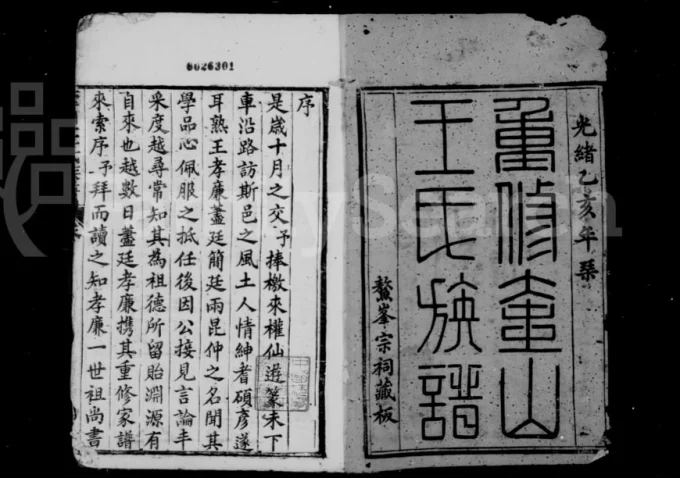 光緒乙亥年琹
重修奎山
王氏族譜
鰲峯宗祠藏板
6026301
序
是歲十月之交予捧檄來權仙遊篆未下
車沿路訪斯邑之風土人情紳耆碩彥遂
耳熟王孝廉藎廷簡廷兩昆仲之名聞其
學品心佩服之抵任後因公接見言論丰
采度越尋常知其為祖德所留貽淵源有
自來也越數日藎廷孝廉携其重修家譜
來索序予拜而讀之知孝廉一世祖尚書
FamilySearch